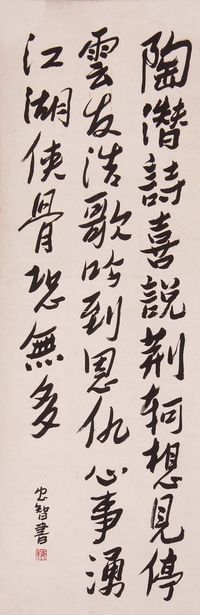 陶潜詩喜說荆軻想見停
雲发浩歌吟到恩仇心事湧
江湖侠骨恐無多
忠智書